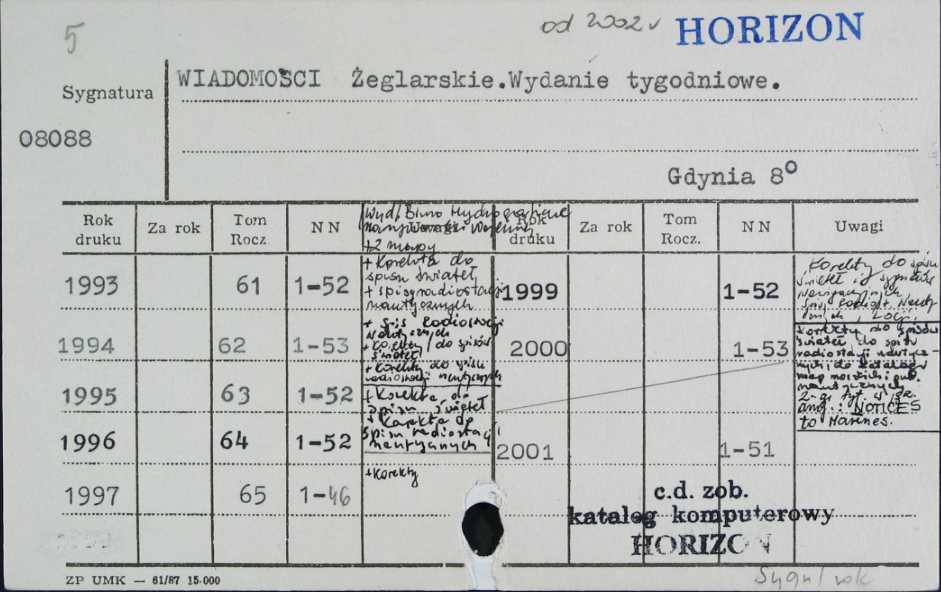 5
od 2002 r HORIZON
WIADOMOŚCI Żeglarskie.Wydanie tygodniowe.
Sygnatura
08088
Gdynia 8°
Rok druku Za rok Tom Rocz. NN Rok druku Za rok Tom Rocz. NN Uwagi
Wyd. Biuro Hydrograficzne
Marynarki Wojennej
+2 mapy
1993 61 1-52
+ Korekta do
spisu świateł
+ spisy radiostacji
nautycznych
1999 1-52
Korekty do spisu
świateł i sygnałów
nawigacyjnych
1994 62 1-53
+ spis Radiostacji
Nautycznych
+ Korekty do spisów
świateł
+ Korekty do spisu
radiostacji nautycznych
2000 1-53
Korekty do spisów
świateł, do spisu
radiostacji nautycz-
nych i do katalogów
map morskich i publ.
nautycznych
2-gi tyt. w jęz.
ang.: NOTICES
to Mariners.
1995 63 1-52
+ Korekta do
spisu świateł
1996 64 1-52
+ Korekta do
spisu radiostacji
nautycznych
2001 1-51
1997 65 1-46
+ Korekty
c.d. zob.
katalog komputerowy
HORIZON
ZP UMK — 61/87 15·000
Sygn/rok